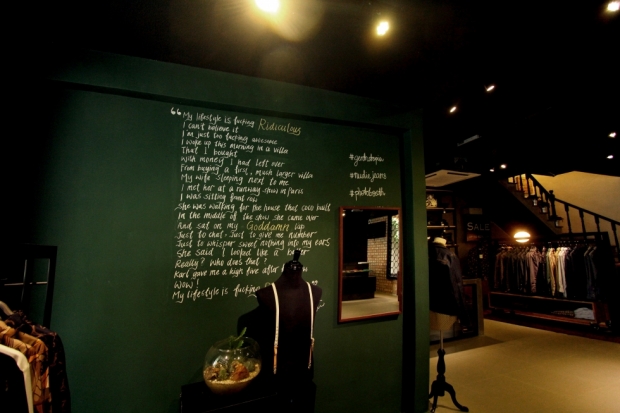 “ My lifestyle is fucking Ridiculous
I can't believe it
I'm just too fucking awesome
I woke up this morning in a villa
That I bought
With money I had left over
From buying a first, much larger villa
My wife sleeping next to me
I met her at a runway show in Paris
I was sitting front row
She was walking for the house that coco built
In the middle of the show she came over
And sat on my Goddamn lap
Just to chat - Just to give me number
Just to whisper sweet nothing into my ears
She said I looked like a
Really? Who does that?
Karl gave me a high five after
Wow!
My lifestyle is fucking
#photobooth
SALE